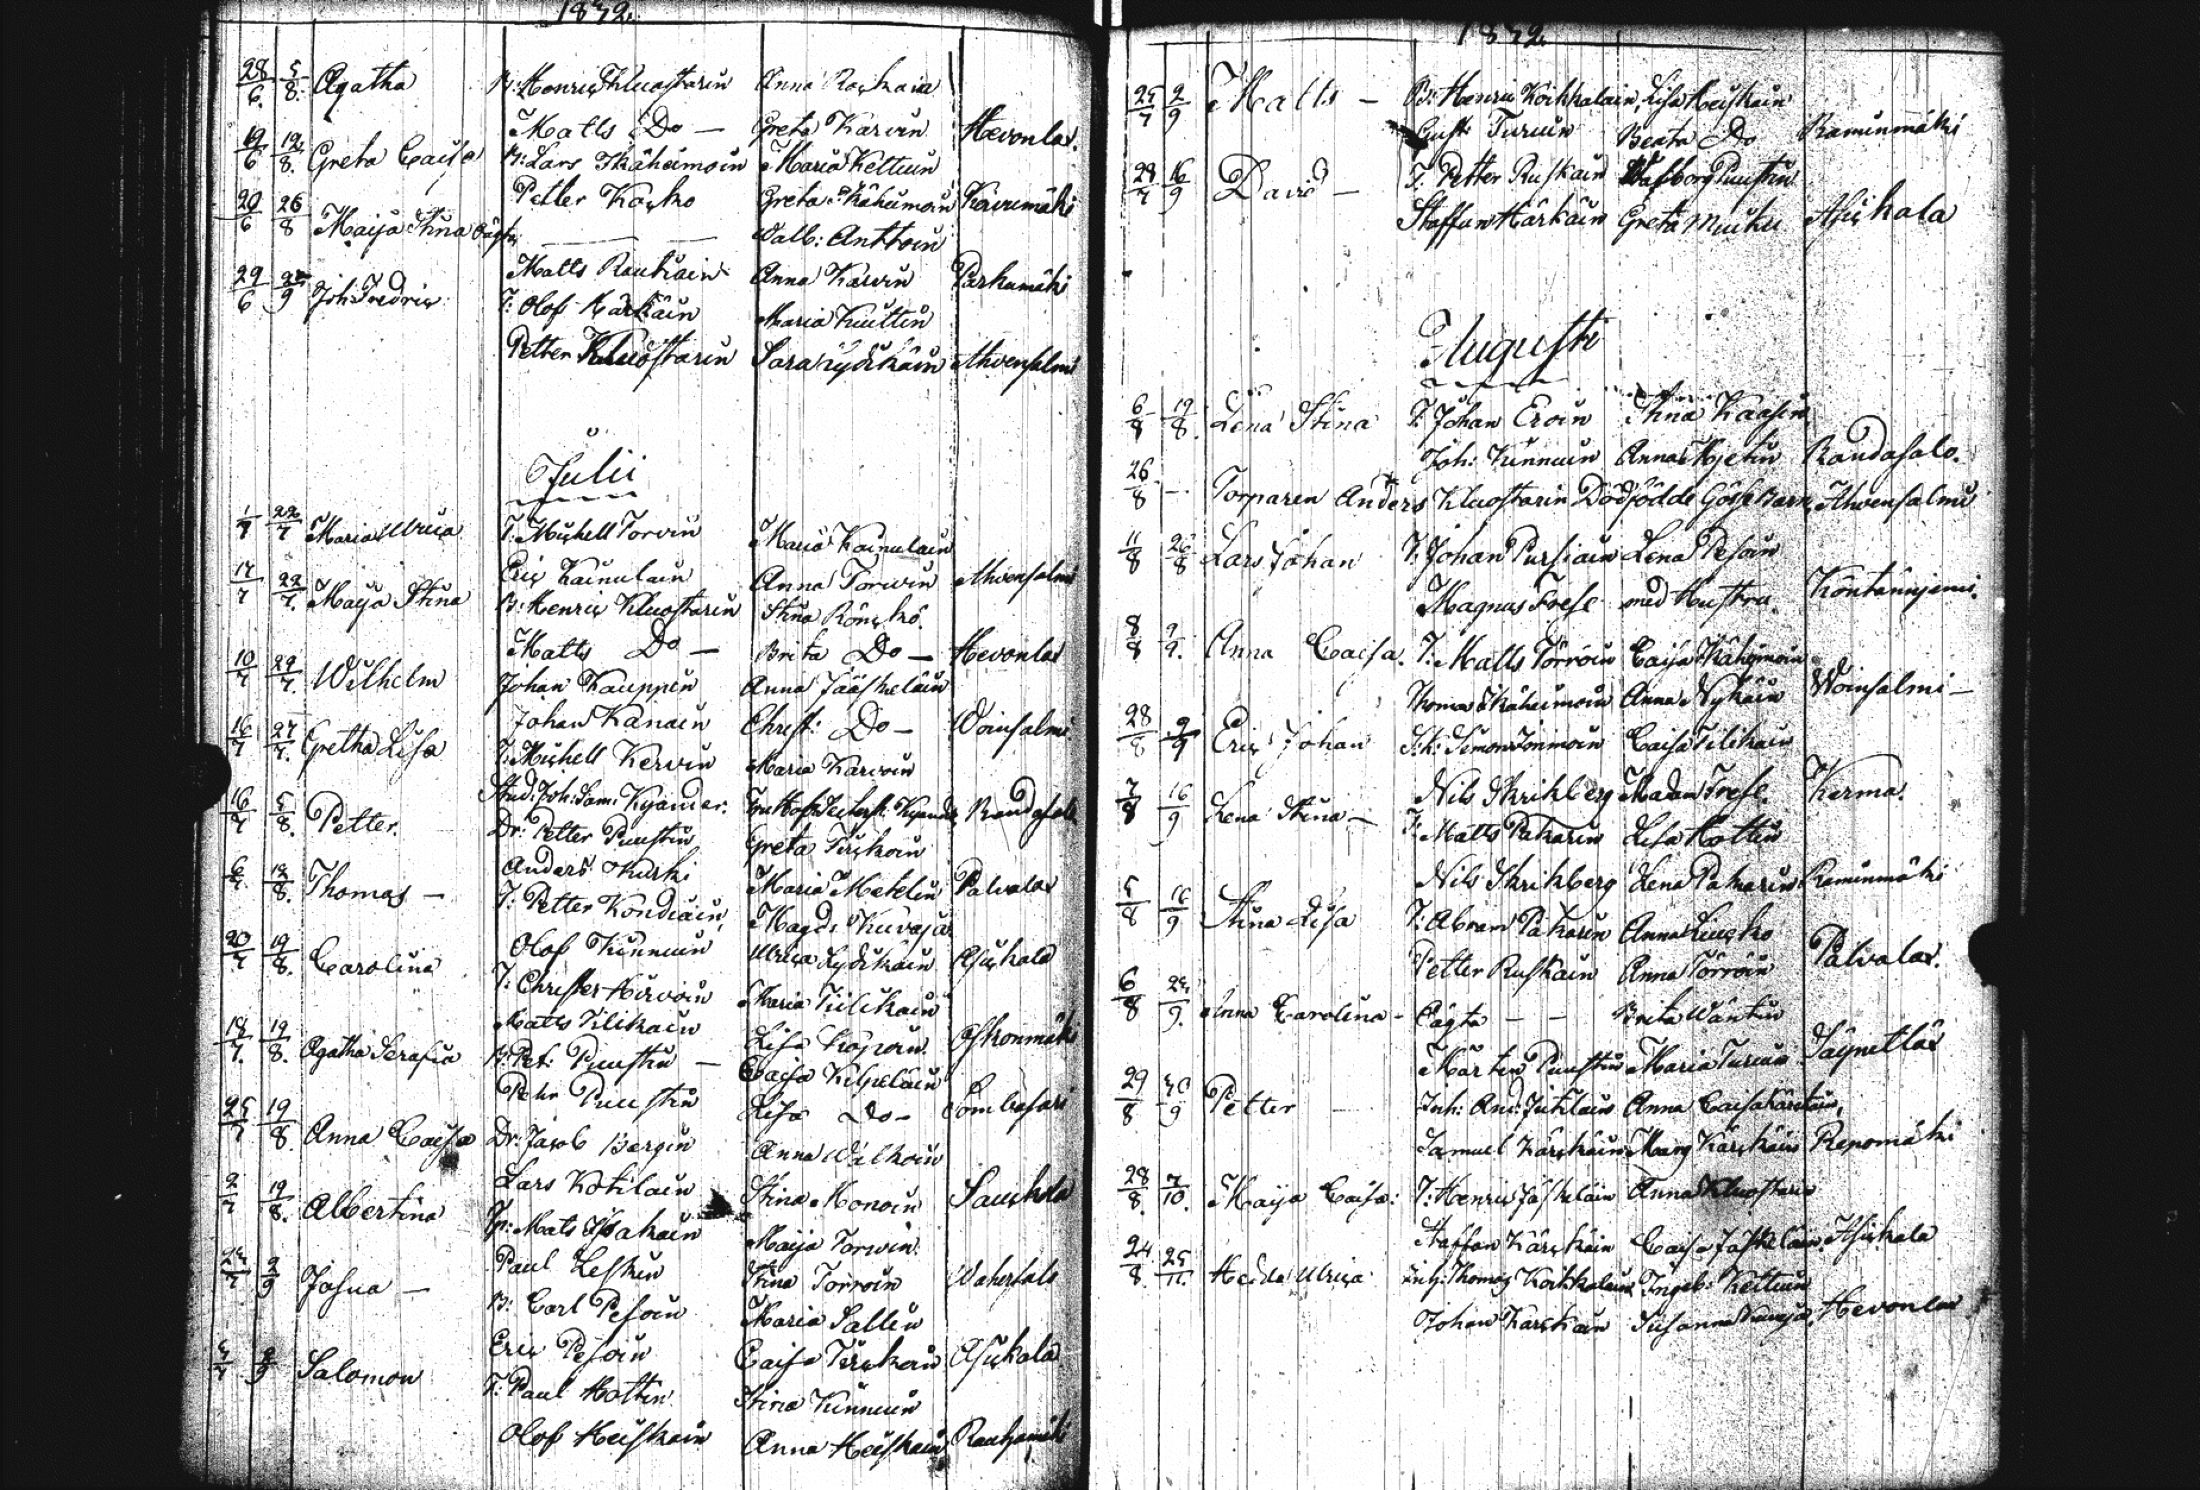 1832.
28/6. 5/8. Agatha B: Henric Kluostarin Anna Rackain
Matts Do — Greta Karvin Hevonlax.
19/6 12/8. Greta Caisa B: Lars Ikäheimoin Maria Kettuin
Petter Kocko Greta Ikäheimoin Kärumäki
20/6 26/8 Maija Stina Oägta — — Valb: Anttoin
Matts Rautiain Anna Karvin Parkumäki
29/6 /9 Joh: Fredric T: Olof Kärkäin Maria Kuittin
Petter Kluostarin Sara Lydikäin Ahvensalmi
Julii
1/7 22/7 Maria Ulrica T: Michell Torvin Maria Kainulain
Eric Kainulain Anna Torvin Ahvensalmi
14/7 22/7. Maija Stina B: Henric Kluostarin Stina Rönckö.
Matts Do — Brita Do — Hevonlax
10/7 29/7. Wilhelm Johan Kauppin Anna Jääskelain
Johan Kanain Christ: Do — Woinsalmi
16/7 27/7. Gretha Lisa T: Michell Kervin Maria Karvoin
Stud: Joh: Sam: Kyander. Kyander Randasalo
16/7 5/8. Petter. Dr: Petter Puustin Greta Tirckoin
Anders Kurki Maria Matelin Palvalax
6/7 12/8. Thomas — T: Petter Kondiain, Magd: Kuvaja
Olof Kinnuin Ulrica Lydikain Asickala
20/7 19/8. Carolina T: Christer Hirvoin Maria Tiilikain
Matts Tilikain Lisa Kopoin Oskonmäki
18/7. 19/8. Agatha Serafia B: Pet: Puustin — Caisa Kilpelain
Pehr Puustin Lisa Do — Sombasari
25/7 19/8. Anna Caisa Dr: Jacob Bergin Anna Valkoin
Lars Kotilain Stina Monoin Sauckola
2/7 19/8. Albertina Tp: Mats Makain Maija Torwin
Paul Leskin Stina Torroin Wahersalo
/7 2/9 Josua — B: Carl Pesoin Maria Sallin
Eric Pesoin Caisa Tirckoin Asickala
/7 2/9 Salomon T: Paul Hottin Stina Kinnuin
Olof Heiskain Anna Heiskain Rauhamäki
1832
25/7 2/9 Matts — B: Henric Koikkalain, Lisa Heiskain
Gust: Turuin Beata Do Raminmäki
29/7 16/9 David — T: Petter Ruskain Walborg Puustin
Staffan Härkäin Greta Muiku Asickala
Augusti
6/8 19/8. Lena Stina T: Johan Eroin Stina Kaasin
Joh: Kinnuin Anna Mjetin Randasalo.
26/8 — Torparen Anders Kluostarin Dödfödde Gosse Barn, Ahvensalmi
11/8 26/8 Lars Johan T: Johan Pursiain Lena Pesoin
Magnus Frese med Hustru. Kontanniemi.
8/8 9/9. Anna Caisa. T: Matts Törröin Caisa Ikäheimoin
Thomas Ikäheimoin Anna Nykäin Woinsalmi —
28/8 9/9 Eric Johan Simon Immoin Caisa Tilikain
Nils Skrikberg Madam Frese. Kerma.
7/8 16/9 Lena Stina — T: Matts Pakarin Lisa Hottin
Nils Skrikberg Lena Pakarin Raminmäki
5/8 16/9 Stina Lisa T: Abram Pakarin Anna Liucko
Petter Ruskain Anna Törröin Palvalax.
6/8 /9. Anna Carolina — Oägta — — Brita Wäntin
Mårten Puustin Maria Turuin Säynetlax
29/8 30/9 Petter — Inh: And: Jutilain Anna Caisa Kärckäin,
Samuel Kärckäin Marg Kärckäin Repomäki
28/8. 7/10. Maija Caisa: T: Henric Jäskeläin Anna Kluostarin
Staffan Kärckäin Caisa Jäskeläin. Asickala
24/8. 25/11. Hedda Ulrica Inh: Thomas Koikkalain Ingeb: Kettuin
Johan Karckain Susanna Kuvaja, Hevonlax